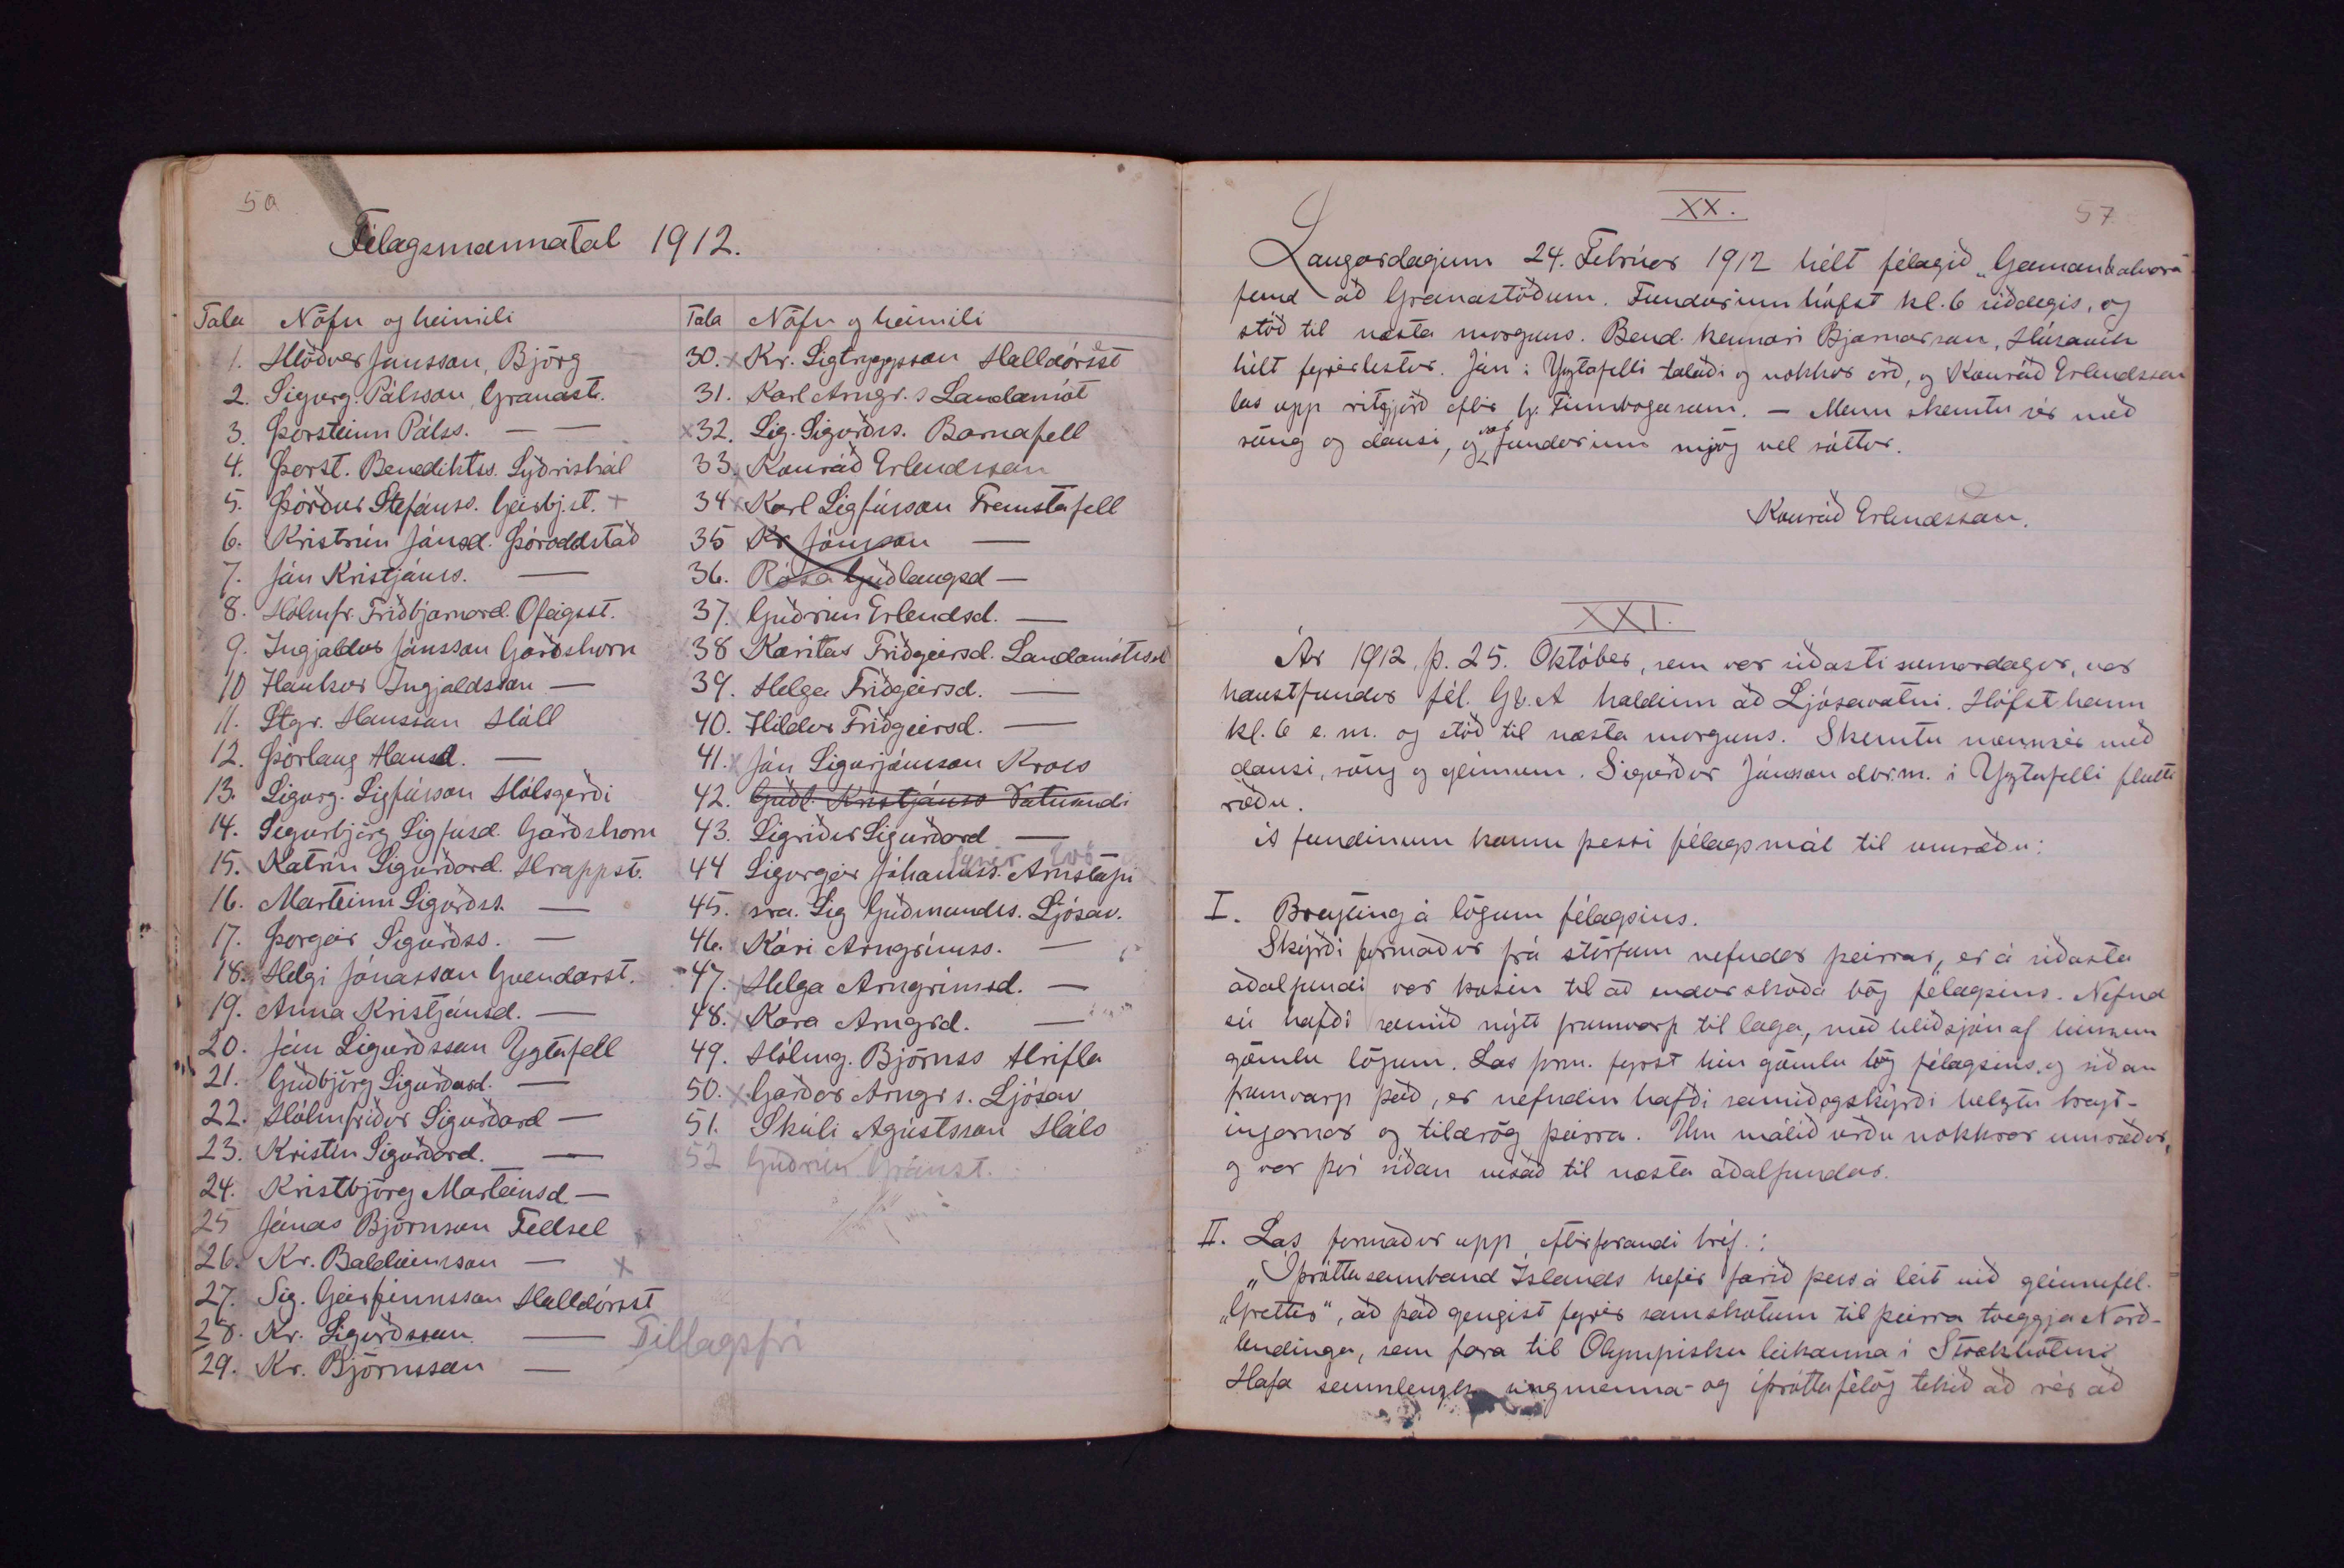 50
Félagsmannatal 1912.
Tala Nöfn og heimili
1. Hlöðver Jónsson, Björg
2. Sigurg. Pálsson, Granast.
3. Þorsteinn Pálss. — —
4. Þorst. Benediktss. Syðrishál
5. Þórður Stefánss. Geirbj.st. +
6. Kristrún Jónsd. Þóroddstað
7. Jón Kristjánss. —
8. Hólmfr. Friðbjarnard. Ófeigsst.
9. Ingjaldur Jónsson Garðshorn
10 Haukur Ingjaldsson —
11. Stgr. Hansson Hóll
12. Þórlaug Hansd. —
13. Sigurg. Sigfússon Hólsgerði
14. Sigurbjörg Sigfúsd. Garðshorn
15. Katrín Sigurðard. Hrappst.
16. Marteinn Sigurðss. —
17. Þorgeir Sigurðss. —
18. Helgi Jónasson Gvendarst.
19. Anna Kristjánsd. —
20. Jón Sigurðsson Yztafell
21. Guðbjörg Sigurðard. —
22. Hólmfríður Sigurðard —
23. Kristín Sigurðard. —
24. Kristbjörg Marteinsd —
25 Jónas Björnson Fellsel
26. Kr. Baldvinsson — x
27. Sig. Geirfinnsson Halldórsst
28. Kr. Sigurðsson. —
29. Kr. Björnsson — Tillagsfri
Tala Nöfn og heimili
30. x Kr. Sigtryggsson Halldórsst
31. Karl Arngr.s Landamót
x32. Sig. Sigurðss. Barnafell
33. Konráð Erlendsson
34 x Karl Sigfússon Fremstafell
35 Kr Jónsson —
36. Rósa Guðlaugsd —
37. Guðrún Erlendsd. —
38 Karitas Friðgeirsd. Landamótssel
39. Helga Friðgeirsd. —
40. Hildur Friðgeirsd. —
41. x Jón Sigurjónsson Kross
42. Guðl. Kristjánss Vatnsendi
43. Sigríður Sigurðard —
44 Sigurgeir Jóhannss. Arnstapi
45. sra. Sig Guðmundss. Ljósav.
46. Kári Arngrímss. —
47. Helga Arngrímsd. —
48. x Kara Arngrd. —
49. Hólmg. Björnss Hrifla
50. x Garðar Arngr s. Ljósav
51. Skúli Ágústsson Háls
52 Guðrún
57
XX.
Laugardaginn 24. Febrúar 1912 hélt félagið „Gaman & alvara"
fund að Granastöðum. Fundurinn hófst kl. 6 síðdegis, og
stóð til næsta morguns. Bend. kennari Bjarnarson, Húsavík
hélt fyrirlestur. Jón í Yztafelli talaði og nokkur orð, og Konráð Erlendsson
las upp ritgjörð eftir G. Finnbogason. — Menn skemtu sér með
söng og dansi, og var fundurinn mjög vel sóttur.
Konráð Erlendsson.
XXI.
Ár 1912, þ. 25. Október, sem var síðasti sumardagur, var
haustfundur fél. G&.A haldinn að Ljósavatni. Hófst hann
kl. 6 e. m. og stóð til næsta morguns. Skemtu menn sér með
dansi, söng og glímum. Sigurður Jónsson dbr.m. í Yztafelli flutti
ræðu.
Á fundinum komu þessi félagsmál til umræðu:
I. Breyting á lögum félagsins.
Skýrði formaður frá störfum nefndar þeirrar, er á síðasta
aðalfundi var kosin til að endurskoða lög félagsins. Nefnd
sú hafði samið nýtt frumvarp til laga, með hliðsjón af hinum
gömlu lögum. Las form. fyrst hin gömlu lög félagsins, og síðan
frumvarp það, er nefndin hafði samið og skýrði helztu breyt-
ingarnar og tildrög þeirra. Um málið urðu nokkrar umræður,
og var því síðan vísað til næsta aðalfundar.
II. Las formaður upp eftirfarandi bréf.:
„Íþróttasamband Íslands hefir farið þess á leit við glímufél.
„Grettir", að það gengist fyrir samskotum til þeirra tveggja Norð-
lendinga, sem fara til Olympisku leikanna í Stokkhólmi
Hafa sunnlenzk ungmenna- og íþróttafélög tekið að sér að